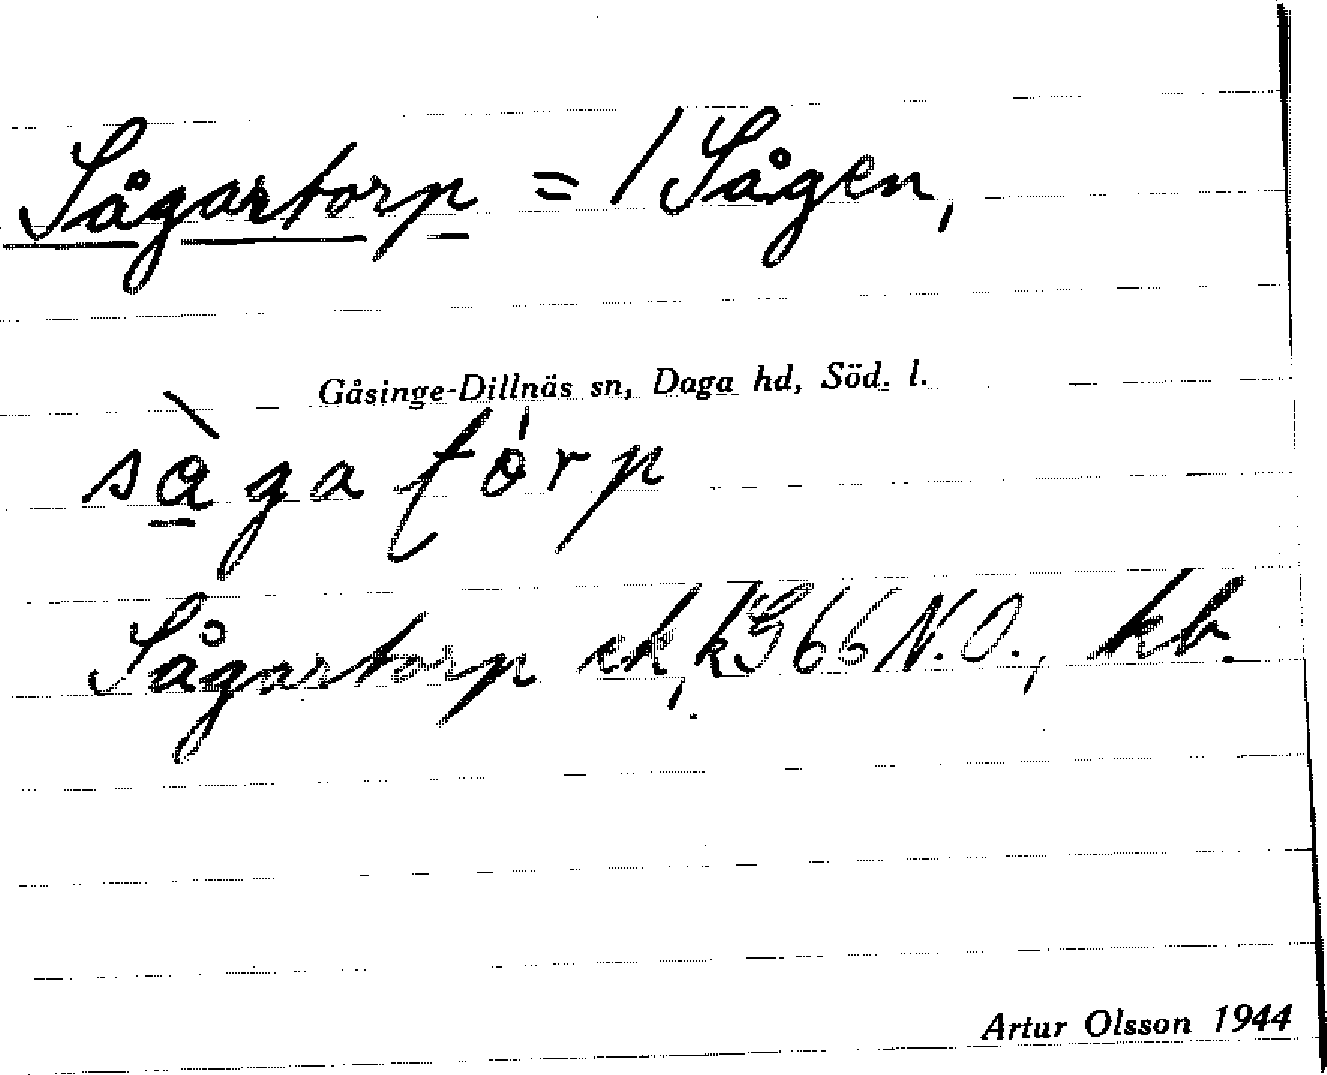 Sågartorp = / Sågen,
Gåsinge-Dillnäs sn, Daga hd, Söd. l.
sàgatórp
Sågartorp ek, N.O., kb.
Artur Olsson 1944